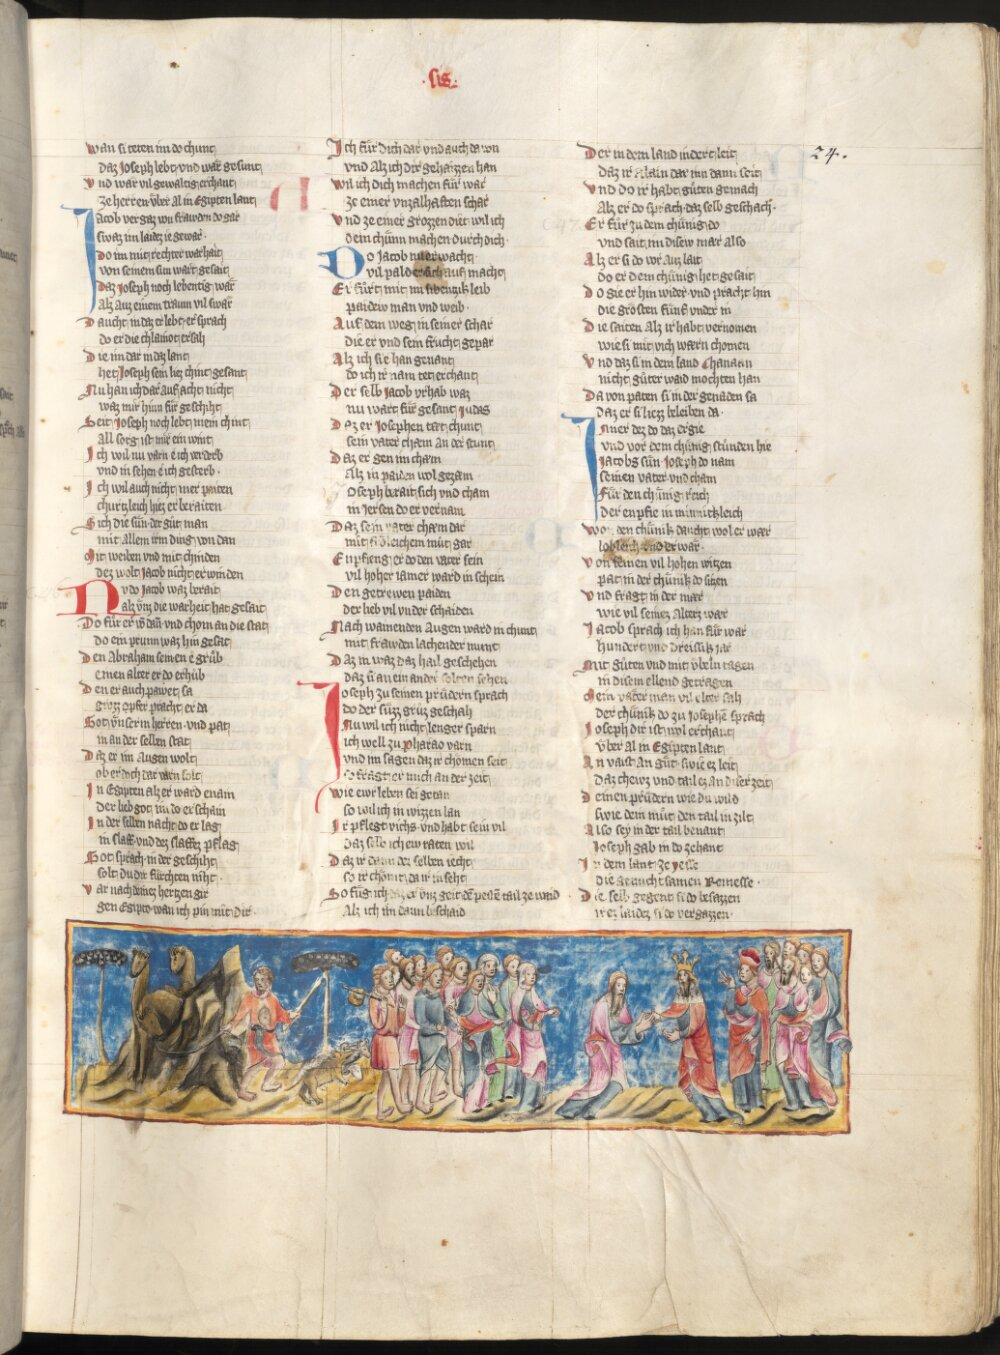 ·sis·
24.
wan si teten im do chunt
daz Joseph lebt vnd wär gesunt
Vnd wär vil gewaltig erchant
ze herren vber al in Egipten lant
Jacob vergaz vnn frawden do gar
swaz im laides ie gewar·
Do im mit rechter warhait
von seinem sun wart gesait
Daz Joseph noch lebentig wär
Alz auz einem traum vil swär
Daucht in daz er lebt er sprach
do er die chlainot ersah
Die im dar in daz lant
het Joseph sein liez chint gesant
Nu han ich dar auf acht nicht
waz mir hinn für geschiht
Seit Joseph noch lebt mein chint
All sorg ist mir ein wint
Ich wil nu varn e ich verderb
vnd in sehen e ich gesterb·
Ich wil auch nicht mer paiten
churtzleich hiez er beraiten
Sich die sün der güt man
mit allem irm ding von dan
Mit weiben vnd mit chinden
dez wolt Jacob nicht erwinden
Nv do Jacob waz berait
alz vnz die warheit hat gesait
Do für er von dan vnd chom an die stat
do ein prunn waz hin gesat
Den Abraham seinen e grüb
einen alter er do erhüb
Den er auch pawet sa
grozz opfer pracht er da
Got vnserm herren vnd pat
in an der selben stat
Daz er im Augen wolt
ob er doch dar varn solt
In Egipten alz er ward enain
der lieb got im do erschain
In der selben nacht do er lag
in slaff vnd dez slaffez pflag
Got sprach in der geschiht
solt du dir fürchten niht·
Var nach deinez hertzen gir
gen Egipto wan ich pin mit dir
Ich für dich dar vnd auch da von
vnd Alz ich dir gehaizzen han
Wil ich dich machen für war
ze einer vnzalhaften schar
Vnd ze einer grozzen diet wil ich
dein chünn machen durch dich·
Do Jacob nu erwacht·
vil pald er sich auf macht
Er fürt mit im sibenzik leib
paidew man vnd weib·
Auf dem weg in seiner schar
die er vnd sein frucht gepar
Alz ich sie han genant
do ich ir nam tet erchant
Der selb Jacob vrhab waz
nu wart für gesant Judas
Daz er Josephen tät chunt
sein vater cham an der stunt
Daz er gen im cham
Alz in paiden wol gezam
Joseph berait sich vnd cham
in Jersen do er vernam
Daz sein vater cham dar
mit frőleichem müt gar
Enpfieng er do den vater sein
vil hoher iamer ward in schein
Den getrewen paiden
der lieb vil vnder schaiden
Nach wainenden Augen ward in chunt
mit frawden lachender munt
Daz in waz daz hail geschehen
daz si an ein ander solten sehen
Joseph zu seinen prüdern sprach
do der süzz grüz geschah
Nu wil ich nicht lenger sparn
ich well zu Pharao varn
Vnd im sagen daz ir chomen seit
so frägt er euch an der zeit
Wie ewr leben sei getan
so wil ich in wizzen lan
Ir pflegt vichs vnd habt sein vil
Daz selb ich ew raten wil
Daz ir dann dez selben iecht
so ir chömt da ir in seht
Alz ich im dann beschaid
Der in dem land indert leit
daz ir Alain dar inn dann seit
Vnd do ir habt güten gemach
Alz er do sprach daz selb geschach·
Er für zu dem chünig do
vnd sait im disew mär also
Alz er si do vor auz lait
do er dem chünig het gesait
Do gie er hin wider vnd pracht hin
die grösten fünf vnder in
Die saiten Alz ir habt vernomen
wie si mit vich wärn chomen
Vnd daz si in dem land Chanaan
nicht güter waid mochten han
Da von paten si in der genaden sa
daz er si liezz beleiben da·
Inner dez do daz ergie
vnd vor dem chünig stünden hie
Jacobs sün Joseph do nam
seinen vater vnd cham
Für den chünig reich
der enpfie in minnichleich
Wan den chünik daucht wol er wär
lobleich vnd er war·
Von seinen vil hohen witzen
pat in der chünik do sitzen
Vnd fragt in der mär
wie vil seinez Alterz wär
Jacob sprach ich han für war
hundert vnd dreisik jar
Mit güten vnd mit vbeln tagen
in disem ellend getragen
Mein vater man vil elter sah
der chünik do zu Josephe sprach
Joseph dir ist wol erchant
vber al in Egipten lant
An vaist an güt swie ez leit
daz chewz vnd tail ez an diser zeit
Deinen prüdern wie du wild
swie dein müt den tail in zilt
Also sey in der tail benant
Joseph gab in do zehant
In dem lant ze yesse
die ge aucht samen Remesse·
Die selb gegent si do besazzen
irez laidez si do vergazzen·